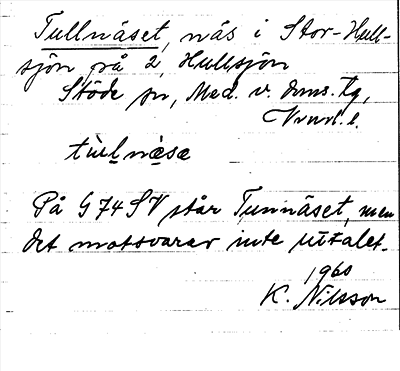 Tullnäset, näs i Stor-Hull-
sjön på 2, Hullsjön
Stöde sn, Med. v. doms. tg,
Vrnrl. l.
tùlnæsæ
På G74SV står Tunnäset, men
det motsvarar inte uttalet.
1960
K. Nilsson